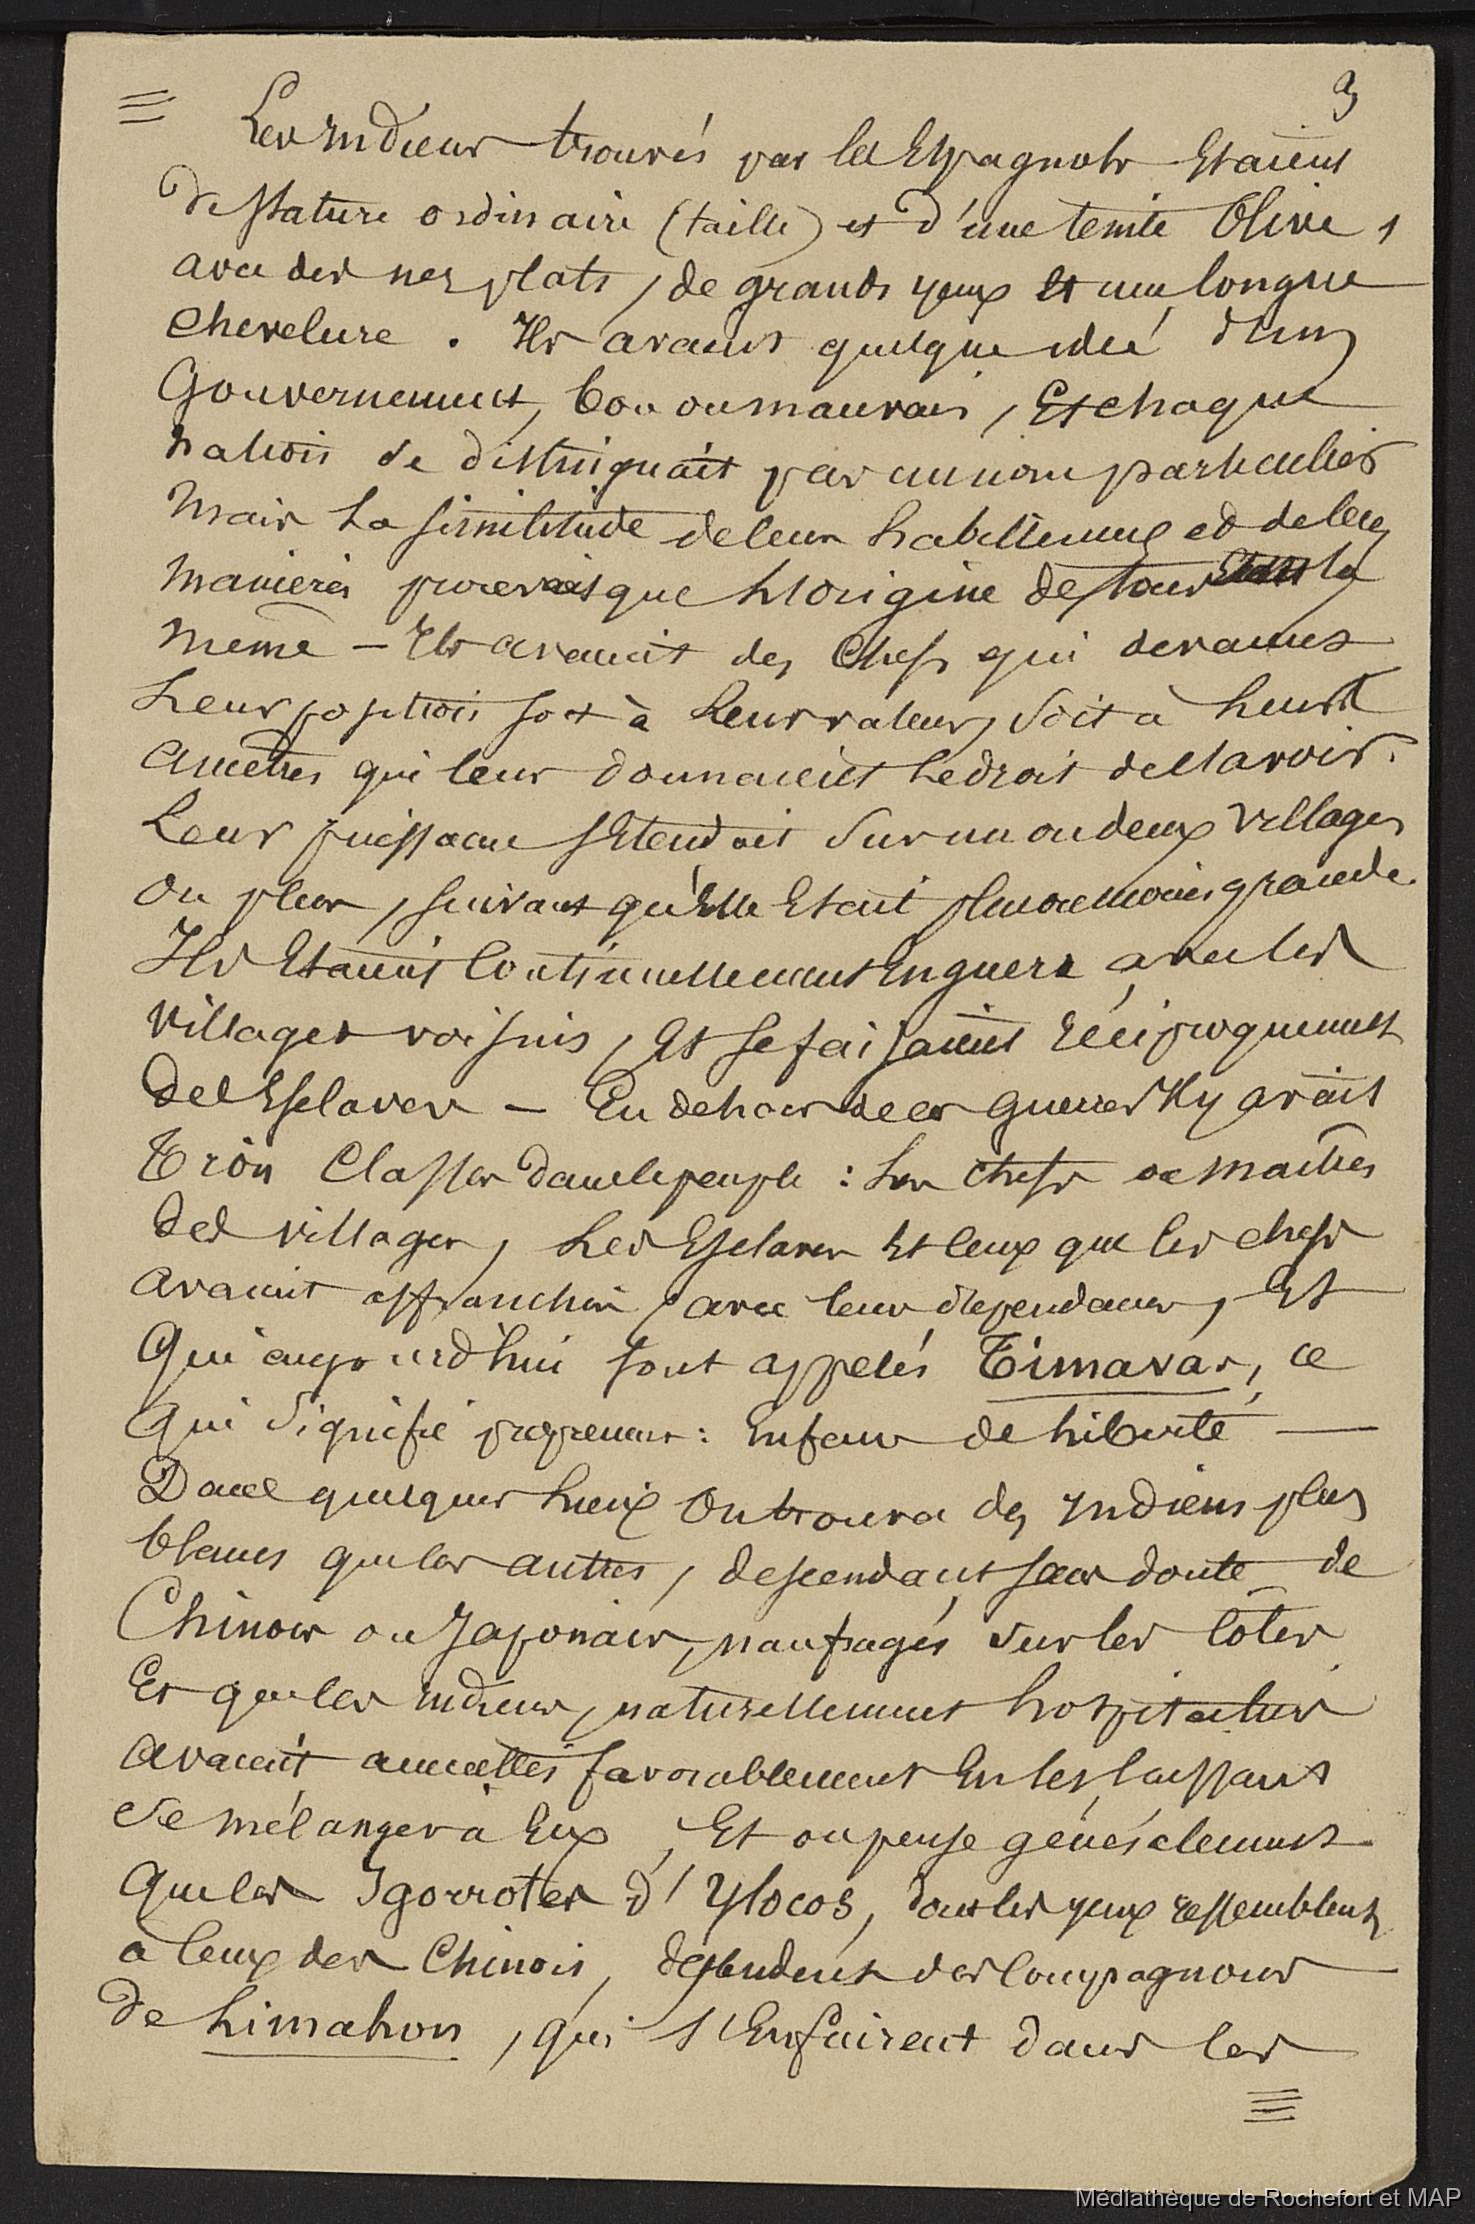 3
Les Indiens trouvés par les Espagnols Etaient
de stature ordinaire (taille) et d'une teinte Olive,
avec des nez plats, de grands yeux et une longue
chevelure. Ils avaient quelque idée d'un
Gouvernement, bon ou mauvais, Et chaque
nation se distinguait par un nom particulier
mais la similitude de leur habillement et de leurs
manières prouvait que l'origine de tous la
meme – Ils avaient des Chefs qui devaient
leur position soit à leur valeur, soit à leurs
Ancêtres qui leur donnaient le droit de l'avoir.
Leur puissance s'Etendait sur un ou deux villages
ou plus, suivant qu'Elle Etait plus ou moins grande.
Ils Etaient Continuellement En guerre avec les
villages voisins, Et se faisaient réciproquement
des Esclaves – En dehors de ces guerres il y avait
Trois Classes dans le peuple : les chefs ou maîtres
des villages, les Esclaves Et ceux que les chefs
avaient affranchis, avec leurs dependances, Et
Qui aujourd'hui sont appelés Timavas, ce
qui signifie proprement : Enfans de liberté —
Dans quelques lieux On trouva des Indiens plus
blancs que les autres, descendant sans doute de
Chinois ou Japonais, naufragés sur les côtes
Et que les indiens, naturellement hospitaliers
avaient accueillis favorablement En les laissant
se mélanger à Eux, Et on pense généralement
Que les Igorrotes d'Ylocos, dont les yeux ressemblent
à ceux des Chinois, descendent des Compagnons
de Limahon, qui s'Enfuirent dans les
Médiathèque de Rochefort et MAP